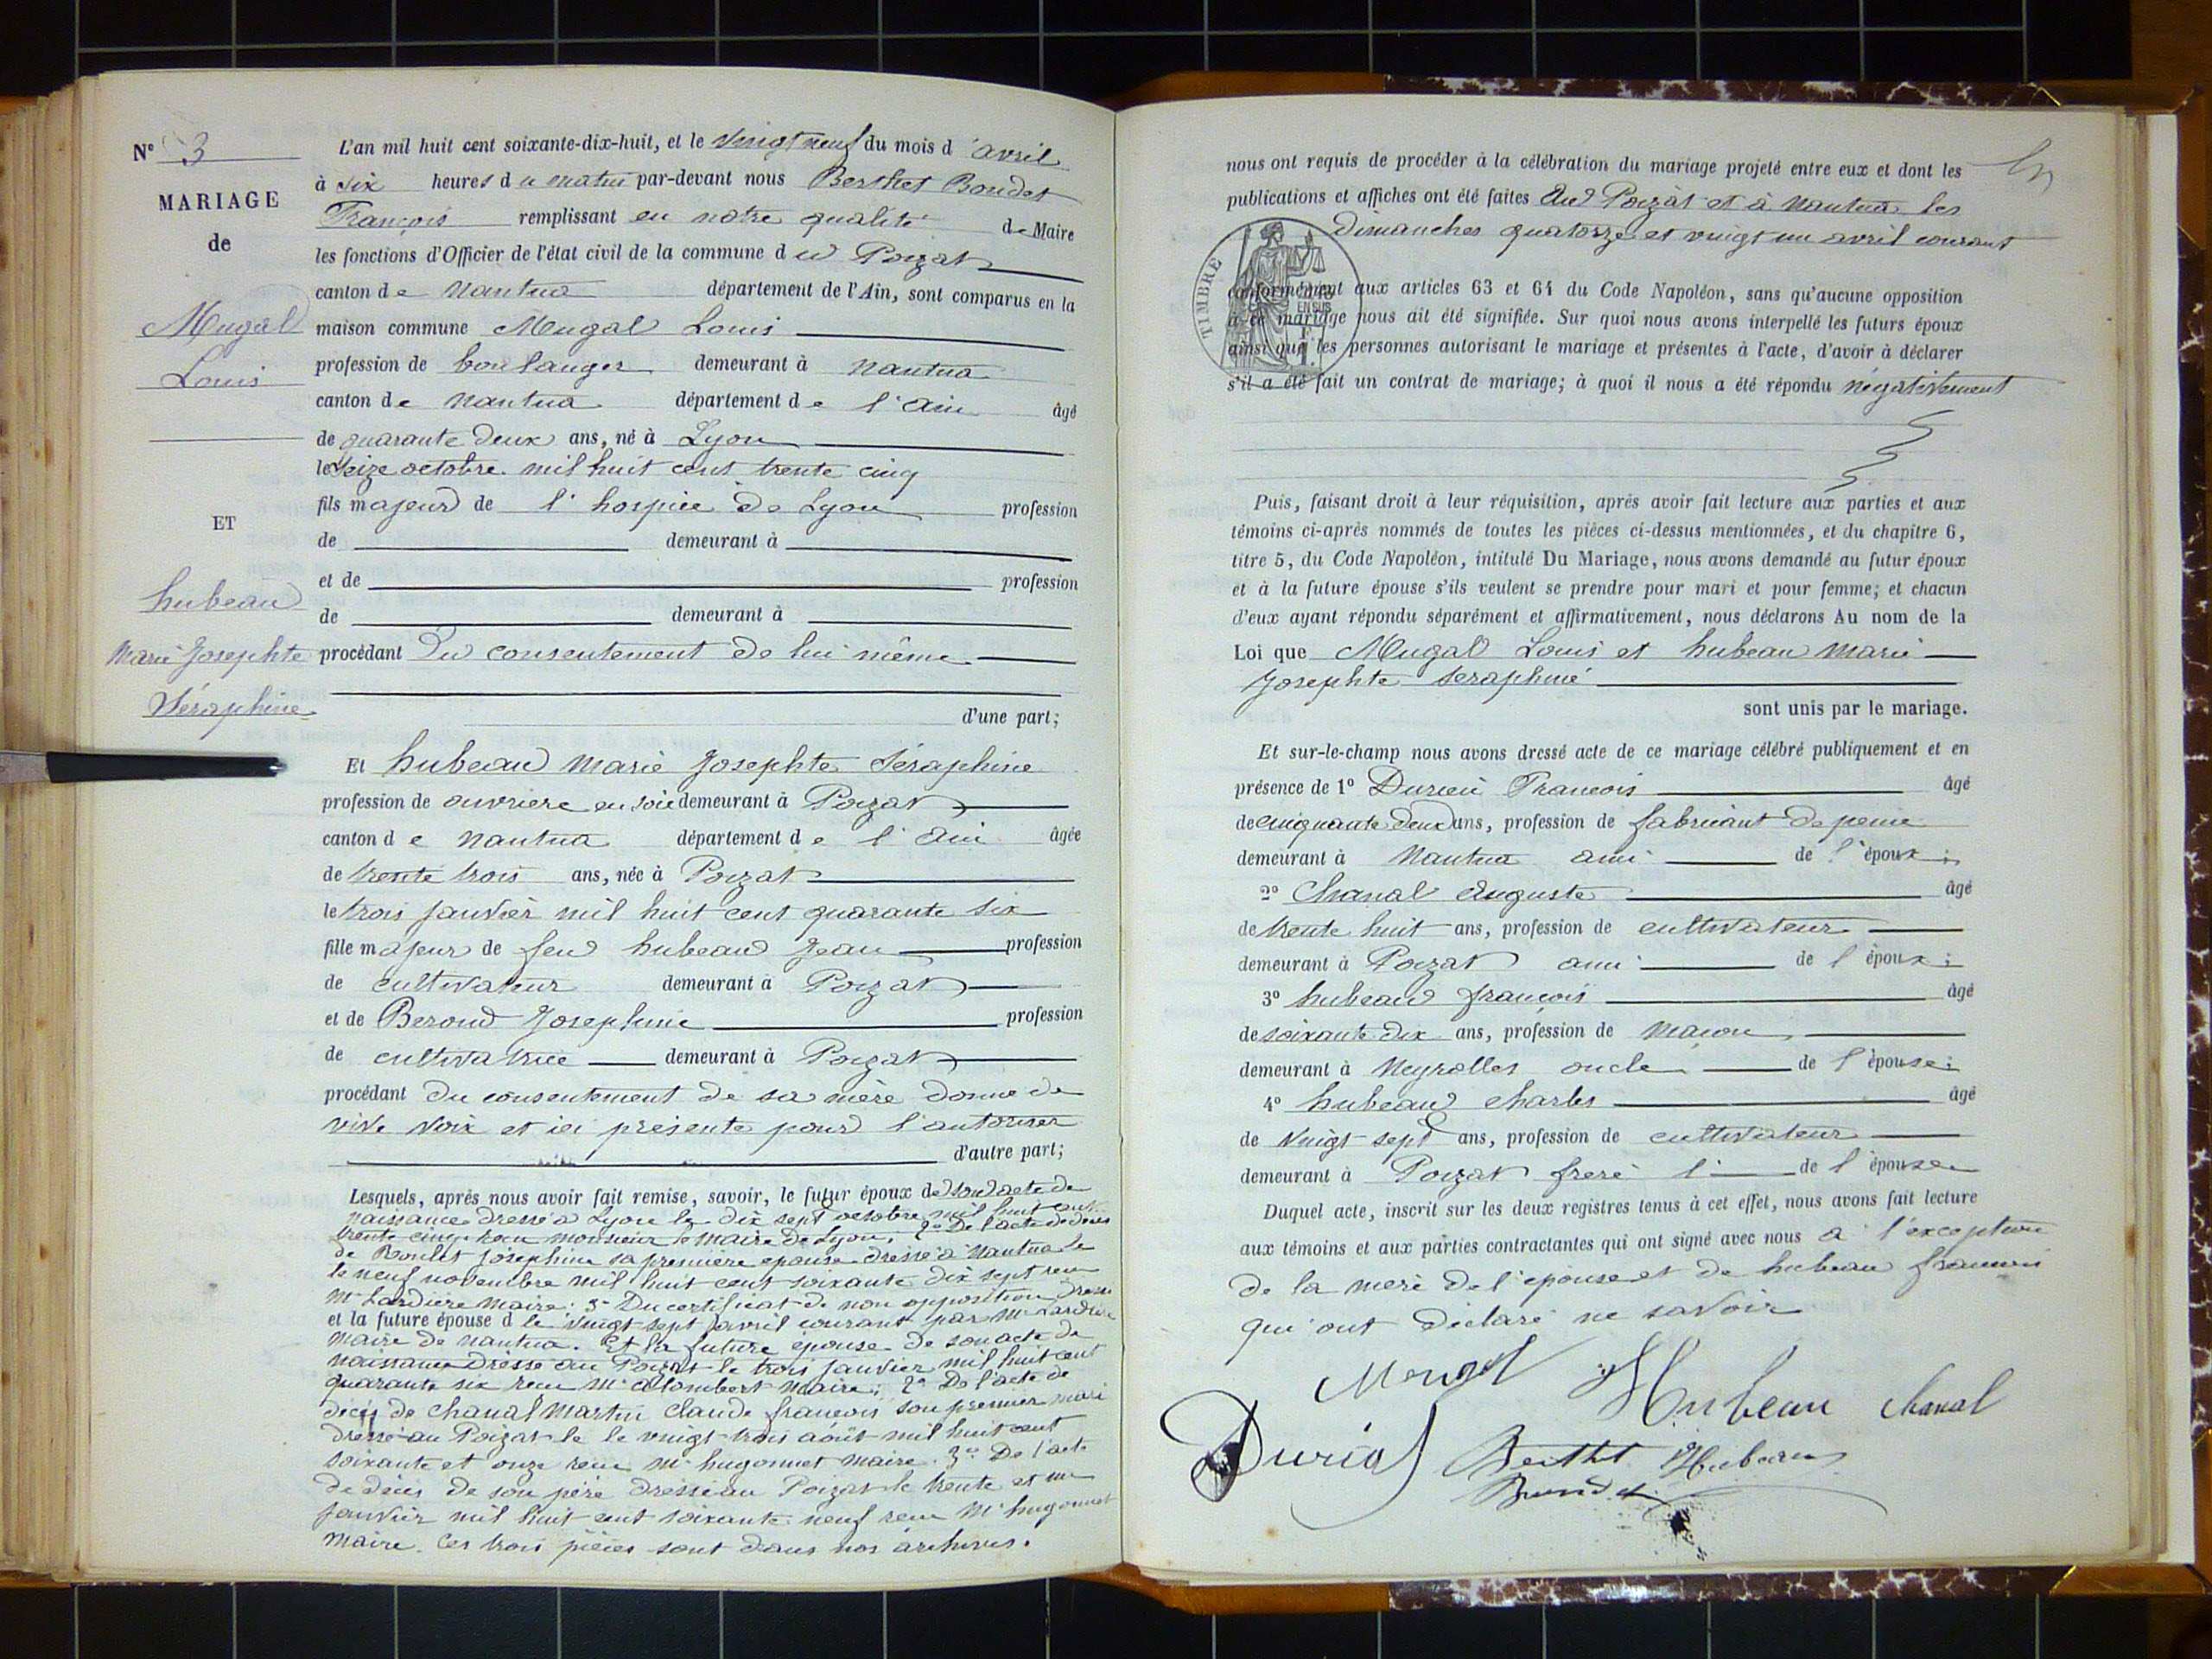 N° 3
MARIAGE
de
Mugal
Louis
ET
hubeau
Marie Josephte
Séraphine
L'an mil huit cent soixante-dix-huit, et le vingt neuf du mois d'avril
à six heures du matin par-devant nous Berthet Bondet
François remplissant en notre qualité de Maire
les fonctions d'Officier de l'état civil de la commune du Poizat
canton de Nantua département de l'Ain, sont comparus en la
maison commune Mugal Louis
profession de boulanger demeurant à Nantua
canton de Nantua département de l'Ain âgé
de quarante deux ans, né à Lyon
le seize octobre mil huit cent trente cinq
fils majeur de l'hospice de Lyon profession
de demeurant à
et de profession
de demeurant à
procédant du consentement de lui même
d'une part;
Et hubeau Marie Josephte Séraphine
profession de ouvrière en soie demeurant à Poizat
canton de Nantua département de l'Ain âgée
de trente trois ans, née à Poizat
le trois janvier mil huit cent quarante six
fille majeur de feu hubeau Jean profession
de cultivateur demeurant à Poizat
et de Beroud Josephine profession
de cultivatrice demeurant à Poizat
procédant du consentement de sa mère donne de
vive voix et ici présente pour l'autoriser
d'autre part;
Lesquels, après nous avoir fait remise, savoir, le futur époux de son acte de
naissance dressé à Lyon le dix sept octobre mil huit cent
trente cinq reçu monsieur le maire de Lyon; 2° De l'acte de décès
de Josephine sa première épouse dressé à Nantua le
le neuf novembre mil huit cent soixante dix sept reçu
Mr Lardière Maire; 3° Du certificat de non opposition dressé
et la future épouse d le vingt sept avril courant par Mr Lardière
Maire de Nantua. Et la future épouse de son acte de
naissance dressé au Poizat le trois janvier mil huit cent
quarante six reçu Mr Maire; 2° De l'acte de
décès de Chanal Martin Claude françois son premier mari
dressé au Poizat le le vingt trois août mil huit cent
soixante et onze reçu Mr hugonnet maire. 3° De l'acte
de décès de son père dressé au Poizat le trente et un
janvier mil huit cent soixante neuf reçu Mr hugonnet
Maire. Ces trois pièces sont dans nos archives.
nous ont requis de procéder à la célébration du mariage projeté entre eux et dont les
publications et affiches ont été faites Au Poizat et à Nantua les
dimanches quatorze et vingt un avril courant
TIMBRE
EN SUS
conformément aux articles 63 et 64 du Code Napoléon, sans qu'aucune opposition
à ce mariage nous ait été signifiée. Sur quoi nous avons interpellé les futurs époux
ainsi que les personnes autorisant le mariage et présentes à l'acte, d'avoir à déclarer
s'il a été fait un contrat de mariage; à quoi il nous a été répondu négativement
Puis, faisant droit à leur réquisition, après avoir fait lecture aux parties et aux
témoins ci-après nommés de toutes les pièces ci-dessus mentionnées, et du chapitre 6,
titre 5, du Code Napoléon, intitulé Du Mariage, nous avons demandé au futur époux
et à la future épouse s'ils veulent se prendre pour mari et pour femme; et chacun
d'eux ayant répondu séparément et affirmativement, nous déclarons Au nom de la
Loi que Mugal Louis et hubeau Marie
Josephte seraphine
sont unis par le mariage.
Et sur-le-champ nous avons dressé acte de ce mariage célébré publiquement et en
présence de 1° François âgé
de cinquante deux ans, profession de fabricant de peine
demeurant à Nantua ami de l'époux;
2° Chanal Auguste âgé
de trente huit ans, profession de cultivateur
demeurant à Poizat ami de l'époux;
3° hubeau françois âgé
de soixante dix ans, profession de Maçon
demeurant à Neyrolles oncle de l'épouse;
4° hubeau charles âgé
de vingt sept ans, profession de cultivateur
demeurant à Poizat frere de l'épouse
Duquel acte, inscrit sur les deux registres tenus à cet effet, nous avons fait lecture
aux témoins et aux parties contractantes qui ont signé avec nous a l'exception
de la mere de l'épouse et de hubeau françois
qui ont déclaré ne savoir
Hubeau Chanal
Berthet Hubeau
Bondet